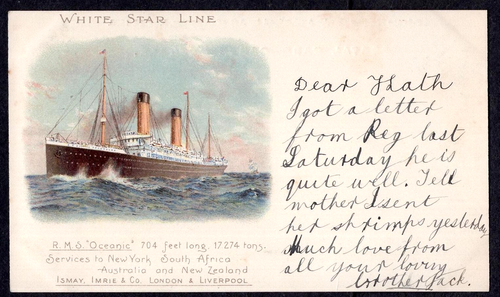 WHITE STAR LINE
R.M.S. "Oceanic" 704 feet long. 17274 tons.
Services to New York South Africa
Australia and New Zealand
ISMAY, IMRIE & CO. LONDON & LIVERPOOL.
Dear
I got a letter
from Reg last
Saturday he is
quite well. Tell
mother I sent
her shrimps yesterday
Much love from
all your loving
brother Jack.